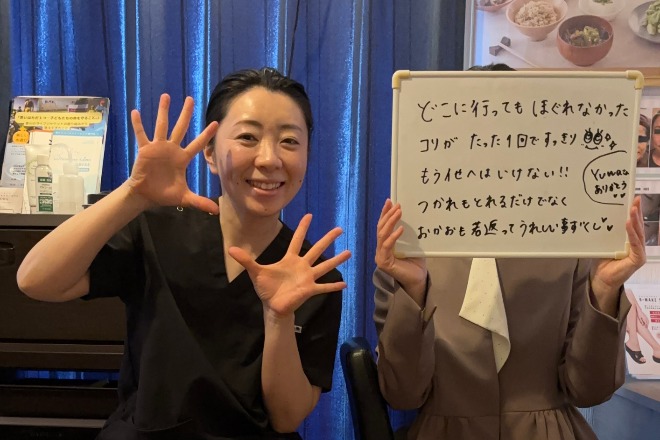 どこに行ってもほぐれなかった
コリが たった1回ですっきり
もう他へはいけない!!
つかれもとれるだけでなく
おかおも若返ってうれしい事ずくし
Yumaさん
ありがとう